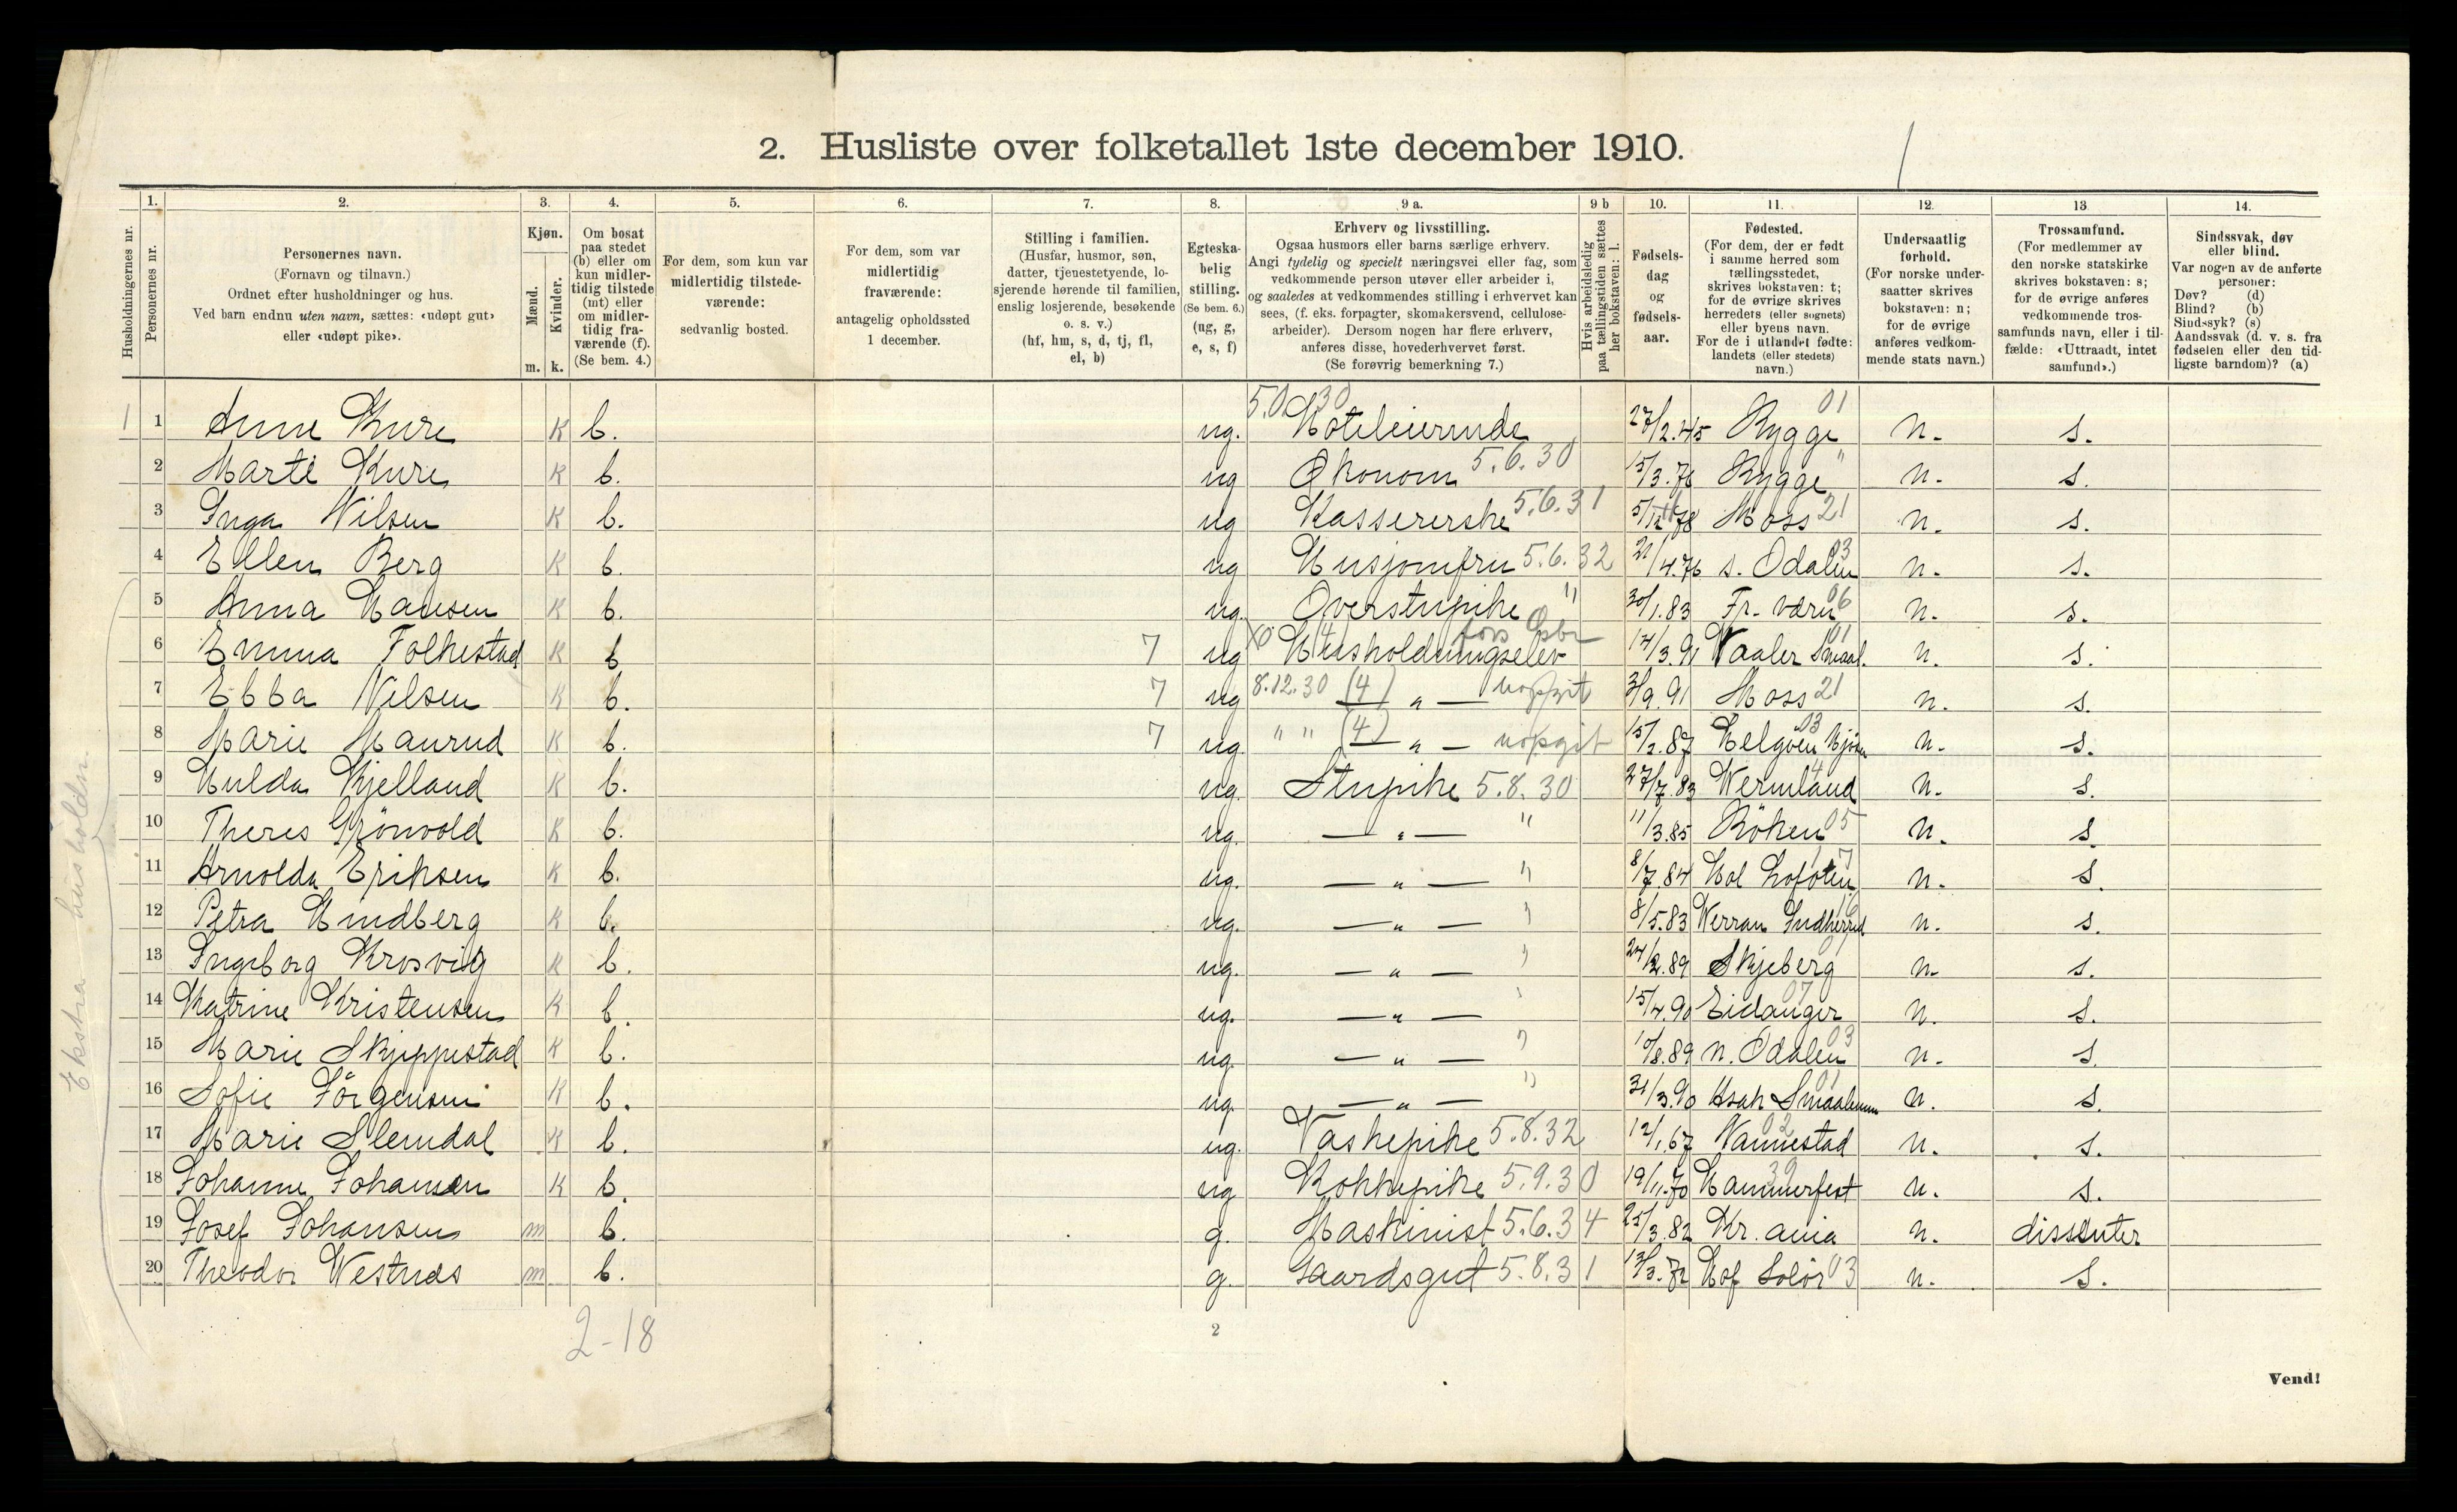 2. Husliste over folketallet 1ste december 1910.
Husholdningernes nr.
1. Personernes nr.
2. Personernes navn. (Fornavn og tilnavn.) Ordnet efter husholdninger og hus. Ved barn endnu uten navn, sættes: «udøpt gut» eller «udøpt pike».
3. Kjøn. Mænd. m. Kvinder. k.
4. Om bosat paa stedet (b) eller om kun midlertidig tilstede (mt) eller om midlertidig fraværende (f). (Se bem. 4.)
5. For dem, som kun var midlertidig tilstedeværende: sedvanlig bosted.
6. For dem, som var midlertidig fraværende: antagelig opholdssted 1 december.
7. Stilling i familien. (Husfar, husmor, søn, datter, tjenestetyende, losjerende hørende til familien, enslig losjerende, besøkende o. s. v.) (hf, hm, s, d, tj, fl, el, b)
8. Egteskabelig stilling. (Se bem. 6.) (ug, g, e, s, f)
9 a. Erhverv og livsstilling. Ogsaa husmors eller barns særlige erhverv. Angi tydelig og specielt næringsvei eller fag, som vedkommende person utøver eller arbeider i, og saaledes at vedkommendes stilling i erhvervet kan sees, (f. eks. forpagter, skomakersvend, cellulosearbeider). Dersom nogen har flere erhverv, anføres disse, hovederhvervet først. (Se forøvrig bemerkning 7.)
9 b Hvis arbeidsledig paa tællingstiden sættes her bokstaven: l.
10. Fødselsdag og fødselsaar.
11. Fødested. (For dem, der er født i samme herred som tællingsstedet, skrives bokstaven: t; for de øvrige skrives herredets (eller sognets) eller byens navn. For de i utlandet fødte: landets (eller stedets) navn.)
12. Undersaatlig forhold. (For norske undersaatter skrives bokstaven: n; for de øvrige anføres vedkommende stats navn.)
13 Trossamfund. (For medlemmer av den norske statskirke skrives bokstaven: s; for de øvrige anføres vedkommende trossamfunds navn, eller i tilfælde: «Uttraadt, intet samfund».)
14. Sindssvak, døv eller blind. Var nogen av de anførte personer: Døv? (d) Blind? (b) Sindssyk? (s) Aandssvak (d. v. s. fra fødselen eller den tidligste barndom)? (a)
1 1 Anne Kure K b. ug. Hoteleierinde 27/2.45 Rygge 01 n. s.
2 Marte Kure K b. ug Økonom 5.6.30 15/3.76 Rygge " n. s.
3 Inga Nilsen K b. ug Kassererske 5.6.31 Moss 21 n. s.
4 Ellen Berg K b. ug Husjomfru 5.6.32 21/4.76 s. Odalen 03 n. s.
5 Anna Hansen K b. ug. Overstupike " 30/1.83 Fr. værn 06 n. s.
6 Emma Folkestad K b 7 ug Husholdningselev 14/3.91 Vaaler Smaal. 01 n. s.
7 Ebba Nilsen K b. 7 ug 8.12.30 (4) — „ — uopgit 3/9.91 Moss 21 n. s.
8 Marie Maurud K b. 7 ug. " " (4) — „ — uopgit 15/2.87 Helgøen Mjøsen 03 n. s.
9 Hulda Kjelland K b. ug. Stupike 5.8.30 27/7.83 Wermland n. s.
10 Theres Grönvold K b. ug. — „ — " 11/3.85 Röken 05 n. s
11 Arnolda Eriksen K b. ug. — „ — " 8/7.84 Hol Lofoten n. s.
12 Petra Hindberg K b. ug. — „ — " 8/5.83 Werran Indherred n. s.
13 Ingeborg Krosvig K b. ug. — „ — " Skjeberg n. s.
14 Katrine Kristensen K b. ug. — „ — " 15/4.90 Eidanger 07 n. s.
15 Marie Skjeppestad K b. ug. — „ — " 10/8.89 n. Odalen 03 n. s.
16 Sofie Jörgensen K b. ug. — „ — " 31/3.90 Askh Smaalenene 01 n. s.
17 Marie Slemdal K b. ug. Vaskepike 5.8.32 12/1.67 Nannestad 02 n. s.
18 Johanne Johansen K b. ug Kokkepike 5.9.30 19/11.70 Hammerfest 39 n. s.
19 Josef Johansen m b. g. Maskinist 5.6.34 25/3.82 Kr. ania n. dissenter
20 Theodor Westnæs m b. g. Gaardsgut 5.8.31 13/3.72 Hof Solör 03 n. s.
Ekstra husholdn.
2-18
2
Vend!